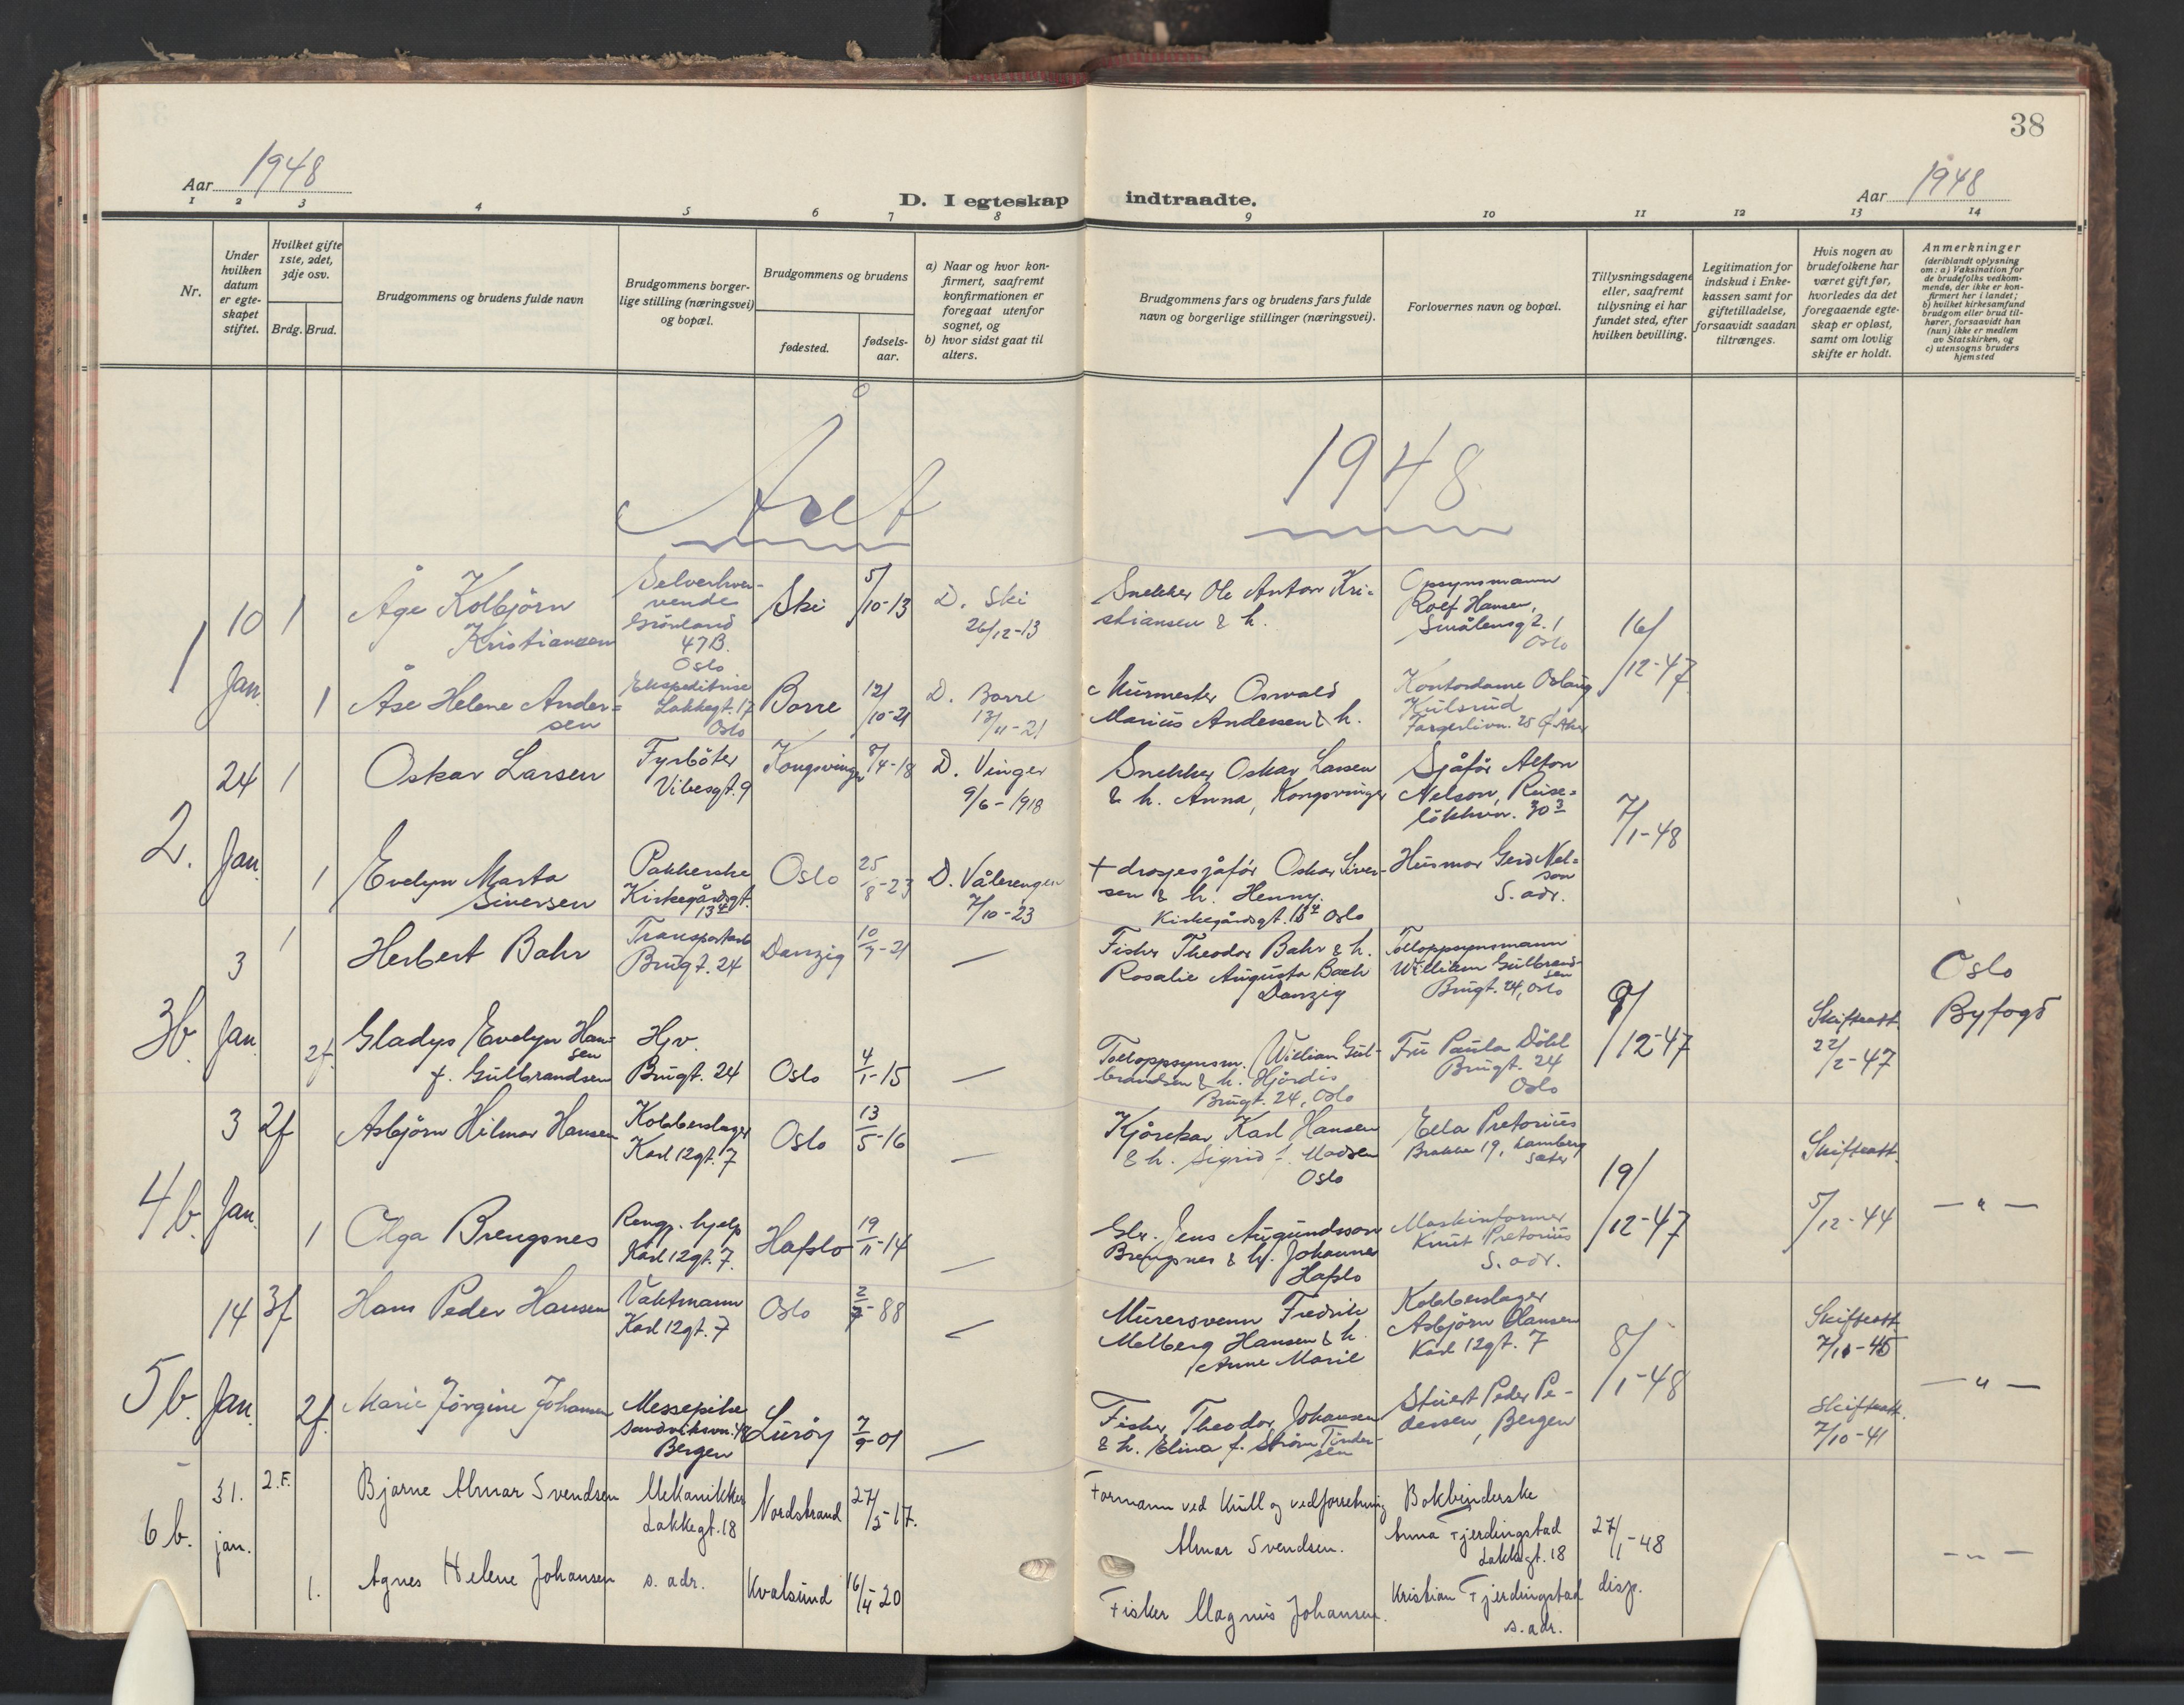 38
Aar 1948
D. I egteskap indtraadte.
Aar 1948
1 2 3 4 5 6 7 8 9 10 11 12 13 14
Nr.
Under
hvilken
datum
er egte-
skapet
stiftet.
Hvilket gifte
1ste, 2det,
3dje osv.
Brdg. Brud.
Brudgommens og brudens fulde navn
Brudgommens borger-
lige stilling (næringsvei)
og bopæl.
Brudgommens og brudens
fødested.
fødsels-
aar.
a) Naar og hvor kon-
firmert, saafremt
konfirmationen er
foregaat utenfor
sognet, og
b) hvor sidst gaat til
alters.
Brudgommens fars og brudens fars fulde
navn og borgerlige stillinger (næringsvei).
Forlovernes navn og bopæl.
Tillysningsdagene
eller, saafremt
tillysning ei har
fundet sted, efter
hvilken bevilling.
Legitimation for
indskud i Enke-
kassen samt for
giftetilladelse,
forsaavidt saadan
tiltrænges.
Hvis nogen av
brudefolkene har
været gift før,
hvorledes da det
foregaaende egte-
skap er opløst,
samt om lovlig
skifte er holdt.
Anmerkninger
(deriblandt oplysning
om: a) Vaksination for
de brudefolks vedkom-
mende, der ikke er kon-
firmert her i landet;
b) hvilket kirkesamfund
brudgom eller brud til-
hører, forsaavidt han
(hun) ikke er medlem
av Statskirken, og
c) utensogns bruders
hjemsted
Året 1948
1
10
Jan.
1
Åge Kolbjörn
Kristiansen
Selverhver-
vende
Grönland
47B.
Oslo
Ski
5/10-13
D. Ski
26/12-13
Snekker Ole Anton Kri-
stiansen & h.
Opsynsmann
Rolf Hansen,
Smålensg 2.1
Oslo
16/12-47
1
Åse Helene Ander=
sen
Ekspeditrise
Lakkegt. 17
Oslo
Borre
12/10-21
D. Borre
13/11-21
Murmester Osvald
Marius Andersen & h.
Kontordame Oslaug
Kulsrud
2.
24
Jan.
1
Oskar Larsen
Fyrböter
Vibesgt. 9
Kongsvinger
8/4-18
D. Vinger
9/6-1918
Snekker Oskar Larsen
& h. Anna, Kongsvinger
Sjåför Alton
Nelson, Ruse=
lökkvn. 30 3
7/1-48
1
Evelyn Marta
Siversen
Pakkerske
Kirkegårdsgt.
13 4
Oslo
25/8-23
D. Vålerengen
7/10-23
+ drosjesjåför Oskar Siver-
sen & h. Henny.
Kirkegårdsgt. 13 4 Oslo
Husmor Gerd Nel=
son
S. adr.
3b
3
Jan.
1
Herbert Bahr
Transportarb
Brugt. 24
Danzig
10/7-21
—
Fisker Theodor Bahr & h.
Rosalie Augusta Bach
Danzig
Tolloppsynsmann
William Gulbrand-
sen
Brugt. 24, Oslo
9/12-47
Oslo
Byfogd
2f.
Gladys Evelyn Han-
sen
f. Gulbrandsen
Hjv.
Brugt. 24
Oslo
4/1-15
—
Tolloppsynsm. William Gul-
brandsen & h. Hjördis
Brugt. 24, Oslo
Fru Paula Döbl
Brugt. 24
Oslo
Skifteatt.
22/2-47
4b.
3
Jan.
2f
Asbjörn Hilmar Hansen
Kobberslager
Karl 12gt. 7
Oslo
13/5-16
—
Kjörekar Karl Hansen
& h. Sigrid f. Madsen
Oslo
Ella Pretorius
Brakke 19, Lamberg
sæter
19/12-47
Skifteatt.
5/12-44
— " —
1
Olga Brengsnes
Rengj. hjelp
Karl 12gt. 7.
Hafslo
19/11-14
—
Gbr. Jens Augundsson
Brengsnes & h. Johanne
Hafslo
Maskinformer
Knut Pretorius
S. adr.
5b.
14
Jan.
3f
Hans Peder Hansen
Vaktmann
Karl 12gt. 7
Oslo
2/7-88
—
Murersvenn Fredrik
Melberg Hansen & h.
Anne Marie
Kobberslager
Asbjörn Hansen
Karl 12gt. 7
8/1-48
Skifteatt
7/11-45
— " —
2f.
Marie Jörgine Johansen
Messepike
Sandviksvn. 47
Bergen
Luröy
7/9-01
—
Fisker Theodor Johansen
& h. Elina f. Ström
Stuert Peder Pe-
dersen, Bergen
Skifteatt.
7/10-41
6b.
31.
jan.
2.F.
Bjarne Almar Svendsen
Mekanikker
Lakkegt. 18
Nordstrand
27/5-17.
Formann ved Kull og vedforretning
Almar Svendsen.
Bokbinderske
Anna Fjerdingstad
Lakkegt. 18
27/1-48
disp.
— " —
1.
Agnes Helene Johansen
s. adr.
Kvalsund
16/4-20
Fisker Magnus Johansen.
Kristian Fjerdingstad
s. adr.